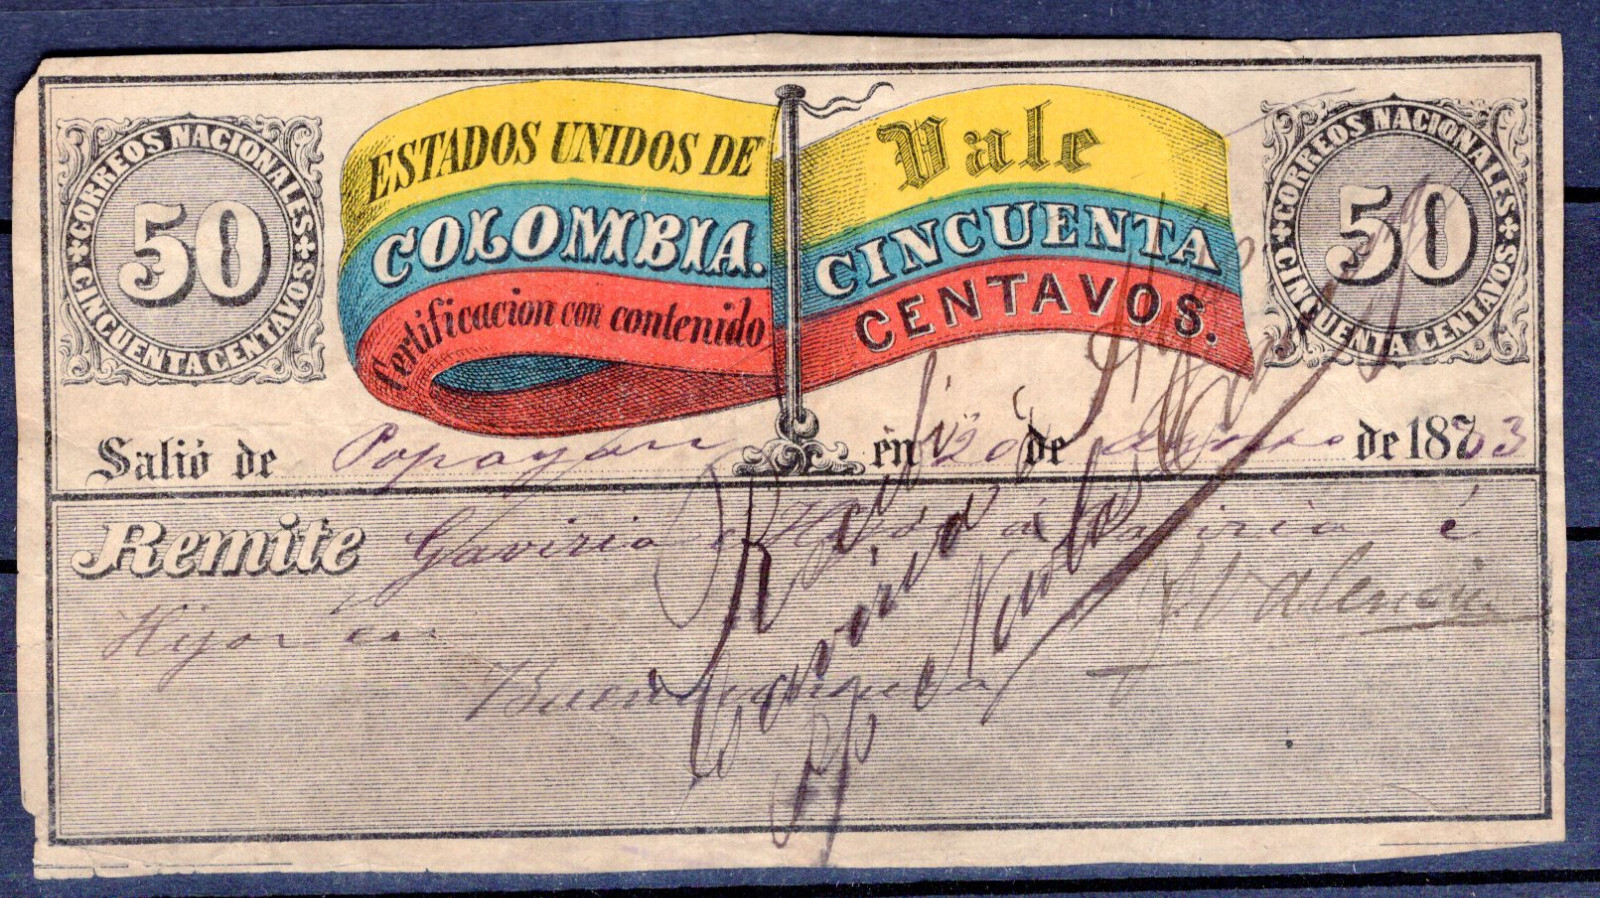 CORREOS NACIONALES
50
CINCUENTA CENTAVOS
ESTADOS UNIDOS DE
COLOMBIA.
Certificacion con contenido
Vale
CINCUENTA
CENTAVOS.
CORREOS NACIONALES
50
CINCUENTA CENTAVOS
Salió de Popayan en 20 de Agosto de 187 3
Remite Gaviria é Hijos á Gaviria é
Hijos en
Buenaventura
Valencia